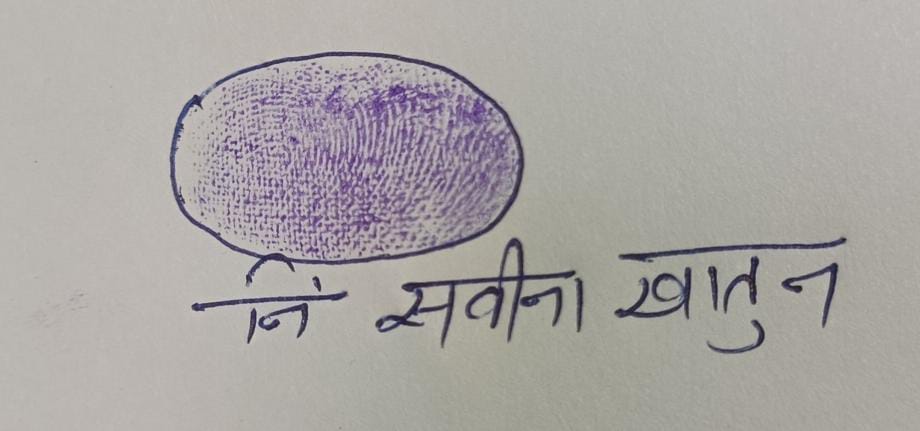 निं सवीना खातुन